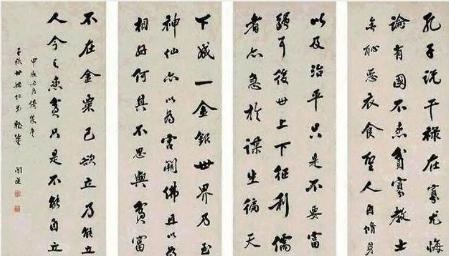 孔子説干祿在寡尤悔
論有國不患貧寡教士
無恥惡衣食聖人自修身
以及治平只是不要富
後世上下征利儒
者亦急於謀生徧天
下成一金銀世界乃至
神仙亦以為宮闕佛且以為
相好何其不思與貧富
不在金粟己欲立乃能立
人今之患貧只是不能自立
闓運